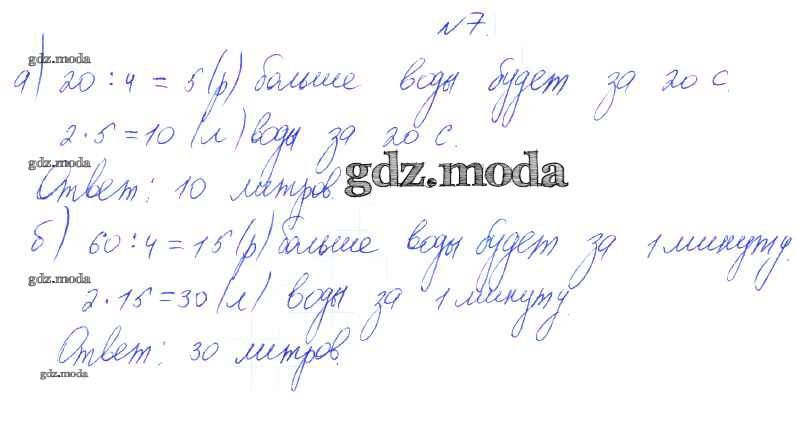 №7.
gdz.moda
а) 20 : 4 = 5 (р) больше воды будет за 20 с.
2 · 5 = 10 (л) воды за 20 с.
gdz.moda
Ответ: 10 литров.
gdz.moda
б) 60 : 4 = 15 (р) больше воды будет за 1 минуту.
gdz.moda
2 · 15 = 30 (л) воды за 1 минуту.
Ответ: 30 литров.
gdz.moda